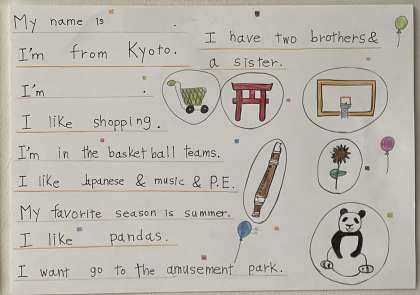 My name is .
I'm from Kyoto.
I'm .
I like shopping.
I'm in the basketball teams.
I like Japanese & music & P.E.
My favorite season is summer.
I like pandas.
I want go to the amusement park.
I have two brothers &
a sister.